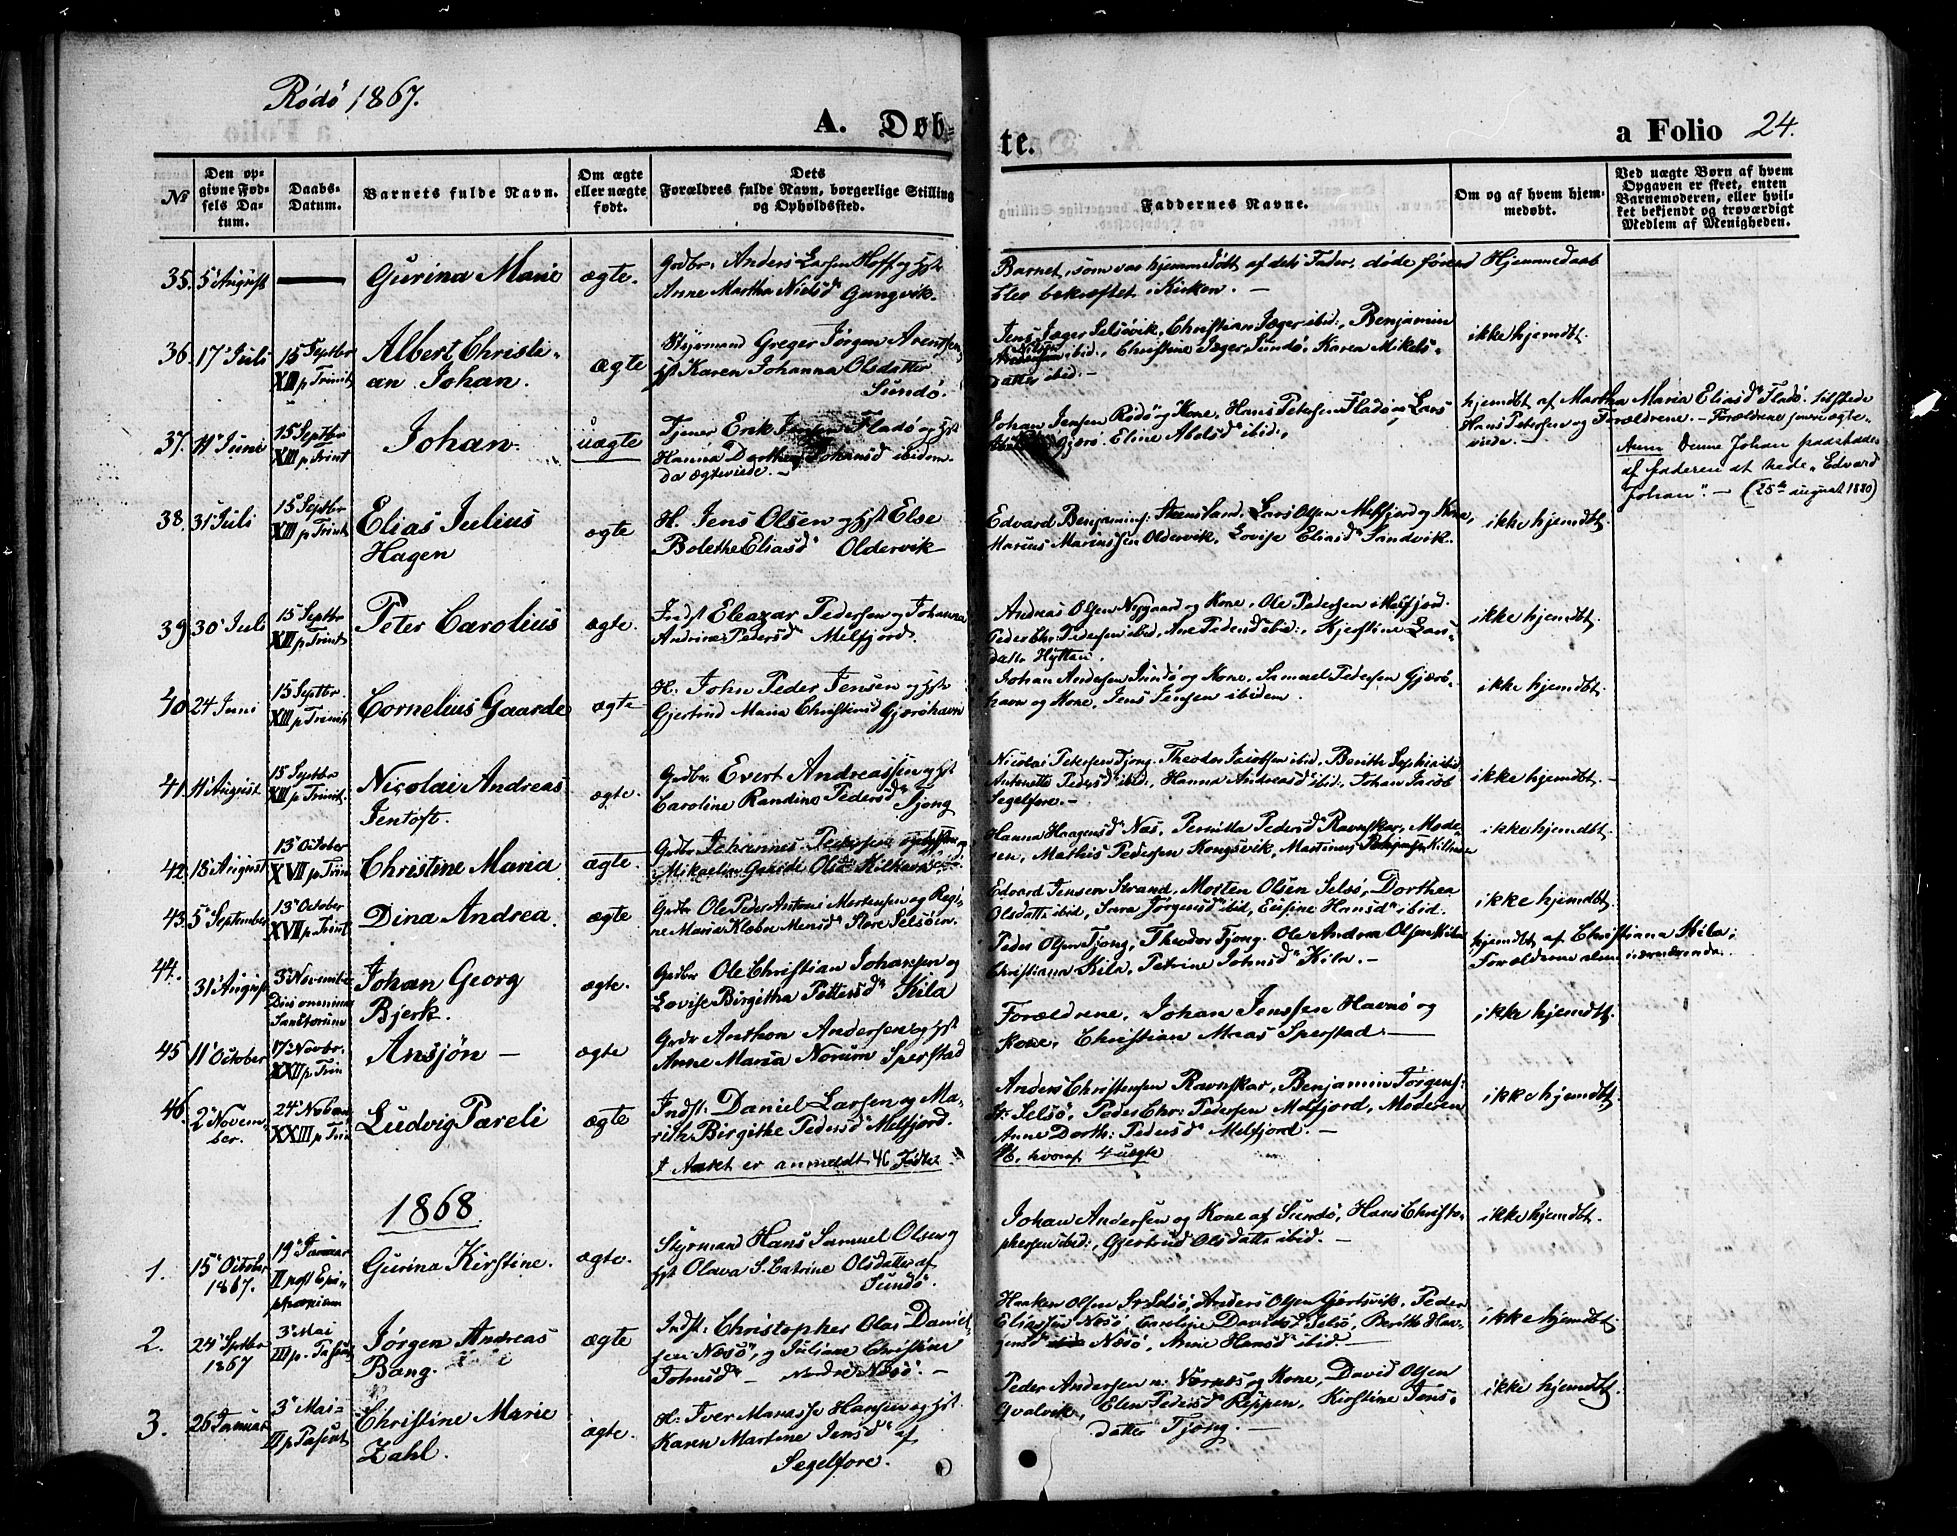 Rödö 1867.
A. Døb-
te.
a Folio 24.
No
Den op-
givne Fød-
sels Da-
tum.
Daabs-
Datum.
Barnets fulde Navn.
Om ægte
eller uægte
født.
Dets
Forældres fulde Navn, borgerlige Stilling
og Opholdssted.
Faddernes Navne.
Om og af hvem hjem-
medøbt.
Ved uægte Børn af hvem
Opgaven er skeet, enten
Barnemoderen, eller hvil-
ket bekjendt og troværdigt
Medlem af Menigheden.
35. 5 August
Gurina Marie
ægte.
Grdbr. Anders Larsen Hoff og Hst
Anne Martha Nielsd Gangvik.
Barnet, som var hjemmedöbt af dets Fader, döde förend Hjemmedaab
blev bekræftet i Kirken. —
36. 17 Juli
15 Septbr
XIII p. Trinit
Albert Christi-
an Johan.
ægte
Styrmand Greger Jörgen Arentsen
Hst Karen Johanna Olsdatter
Sundö.
Jens Jæger Selsövik, Christian Jæger ibid., Benjamin
Nilsen
ibid., Christine Jæger Sundö, Karen Mikels-
datter ibid. —
ikke hjemdbt.
37. 11 Juni
15 Septbr
XIII p. Trinit
Johan.
uægte
Tjener Erik Jensen Fladö og Hst
Hanna Dorthea Johansd ibidem
da ægteviede. —
Johan Jensen Rödö og Kone, Hans Petersen Fladö og Lars
Gjerö. Eline Abelsd ibid.,
hjemdbt af Martha Maria Eliasd Fladö. tilstede
Hans Petersen og Forældrene. — Forældrene ægte-
viede. —
Anm Denne Johan paastaaes
af faderen at hede „Edvard
Johan". — (25de august 1880)
38. 31 Juli
15 Septbr
XIII p. Trinit
Elias Julius
Hagen
ægte
H. Jens Olsen og Hst Else
Bolethe Eliasd Oldervik
Edvard Benjamins. Steensland. Lars Olsen Melfjord og Kone,
Marius Mariussen Oldervik, Lovise Eliasd Sandvik.
ikke hjemdbt.
39. 30 Juli
15 Septbr
XIII p. Trinit
Peter Carolius
ægte.
Indst Eleazar Pedersen og Johanna
Andrina Pedersd Melfjord.
Andreas Olsen Nygaard og Kone, Ole Pedersen i Melfjord.
Peder Chr. Pedersen ibid, Ane Pedersd ibid., Kjerstine Lars-
datter Hyttan.
ikke hjemdbt.
40. 24 Juni
15 Septbr
XIII p. Trinit
Cornelius Gaarde
ægte
H. John Peder Jensen og Hst
Gjertrud Maria Christensd Gjeröhavn
Johan Andersen Sundö og Kone, Samuel Pedersen Gjerö-
havn og Kone, Jens Jensen ibidem.
ikke hjemdbt.
41. 11 August
15 Septbr
XIII p. Trinit.
Nicolai Andreas
Jentoft.
ægte.
Grdbr. Evert Andreassen og Hst
Caroline Randine Pedersd Tjong
Nicolai Petersen Tjong. Theodor Jacobsen ibid, Berithe Sophia ibid
Antonette Pedersd ibid., Hanna Andreasd ibid., Johan Jacob
Segelfore. —
ikke hjemdbt.
42. 13 August
13 October
XVII p. Trin
Christine Maria
ægte.
Grdbr Johannes Pedersen
Mikaeline Olsd Kilhavn
Hanna Haagensd Næs, Pernilla Pedersd Ravnskar, Mode-
ren, Mathis Pedersen Kongsvik, Martinus
ikke hjemdbt.
43. 5 September
13 October
XVII p. Trinit
Dina Andrea
ægte
Grdbr Ole Peder Antoni Mortensen og Regi-
ne Maria Store Selsöen.
Edvard Jensen Strand, Morten Olsen Selsö, Dorthea
Olsdatter ibid, Sara Jörgensd ibid, Eufine Hansd ibid.
ikke hjemdbt.
44. 31 August
3 November
Dies omnium
Sanctorum
Johan Georg
Bjerk.
ægte.
Grdbr Ole Christian Johansen og
Lovise Birgitha Pettersd Kila
Peder Olsen Tjong, Theodor Tjong. Ole Andrea Olsen Kila
Christiana Kila, Petrine Johnsd Kila. —
hjemdbt af Christiana Kila;
Forældrene alene nærværende.
45 11 October
17 Novbr.
XXII p. Trin
Ansjön —
ægte
Grdbr Anthon Andersen og Hst
Anne Maria Norum Sperstad
Forældrene, Johan Jenssen Havnö og
Kone, Christian Meas Sperstad. —
ikke hjemdbt.
46. 2 Novem-
ber.
24 Novbr
XXIII p. Trin
Ludvig Pareli
ægte
Indst: Daniel Larsen og Ma-
rith Birgithe Pedersd Melfjord.
Anders Christensen Ravnskar, Benjamin Jörgens:
St: Selsö, Peder Chr: Pedersen Melfjord, Moderen
Anne Dorth: Pedersd Melfjord. —
ikke hjemdbt.
I Aaret er anmeldt 46 Födte.
46, hvoraf 4 uægte
1868
1. 15 October
1867.
19 Januar
II post Epi-
phaniam
Gurina Kirstine.
ægte.
Styrman Hans Samuel Olsen og
Hst Olava S. Catrine Olsdatter af
Sundö.
Johan Andersen og Kone af Sundö, Hans Christo-
phersen ibid., Gjertrud Olsdatter ibid. —
ikke hjemdbt.
2. 24 Septbr
1867
3 Mai
III p. Paschæ
Jörgen Andreas
Bang.
ægte
Indst: Christopher Olai Daniel-
sen Næsö, og Juliane Christine
Johnsd — Nordre Næsö. —
Haaken Olsen St. Selsö, Anders Olsen Gjertsvik, Peder
Eliassen Næsö, Davidsd Selsö, Berith Haa-
gensd Næsö, Anne Hansd ibid. —
ikke hjemdbt.
3. 26 Januar
3 Mai
Christine Marie
Zahl.
ægte.
H. Iver Manasse Hansen og Hst.
Karen Martine Jensd af
Segelfore.
Peder Andersen n. Værnes og Kone, David Olsen
Qvalvik, Elen Pedersd Reppen, Kirstine Jens-
datter Tjong. —
ikke hjemdbt.